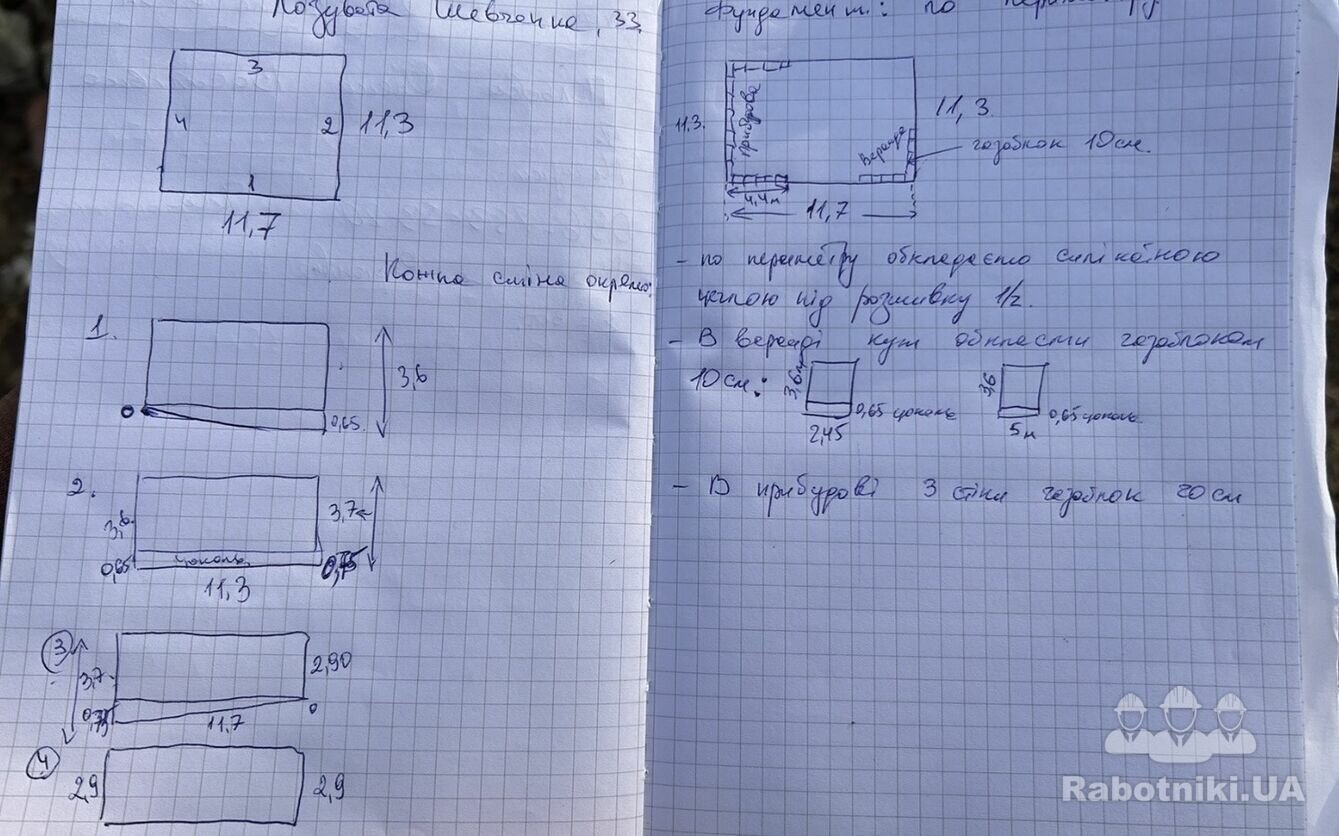 Лозувата Шевченка, 33.
3
4
2
11,3
1
11,7
Кожна стіна окремо:
1.
3,6
0
0,65
2.
3,6
3,7
0,65
цоколь
11,3
3
3,7
2,90
11,7
0
4
2,9
2,9
фундамент: по периметру
11.3.
Прибудова
11,3
Веранда
газоблок 10см.
4,4м
11,7
- по периметру обкладаємо силікатною
цеглою під розшивку 1/2.
- В веранді кут обкласти газоблоком
10см:
3,6м
0,65 цоколь
2,45
3,6
0,65 цоколь
5м
- В прибудові 3 стіни газоблок 20см
Rabotniki.UA